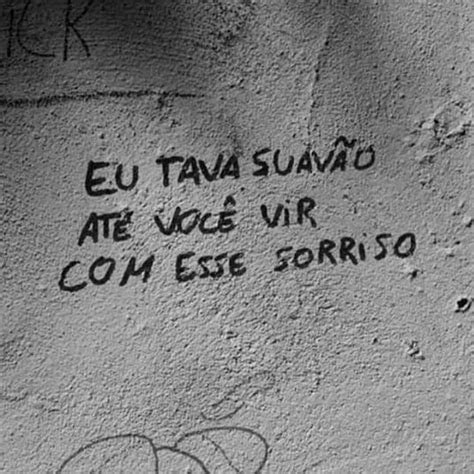 ICK
EU TAVA SUAVÃO
ATÉ VOCÊ VIR
COM ESSE SORRISO